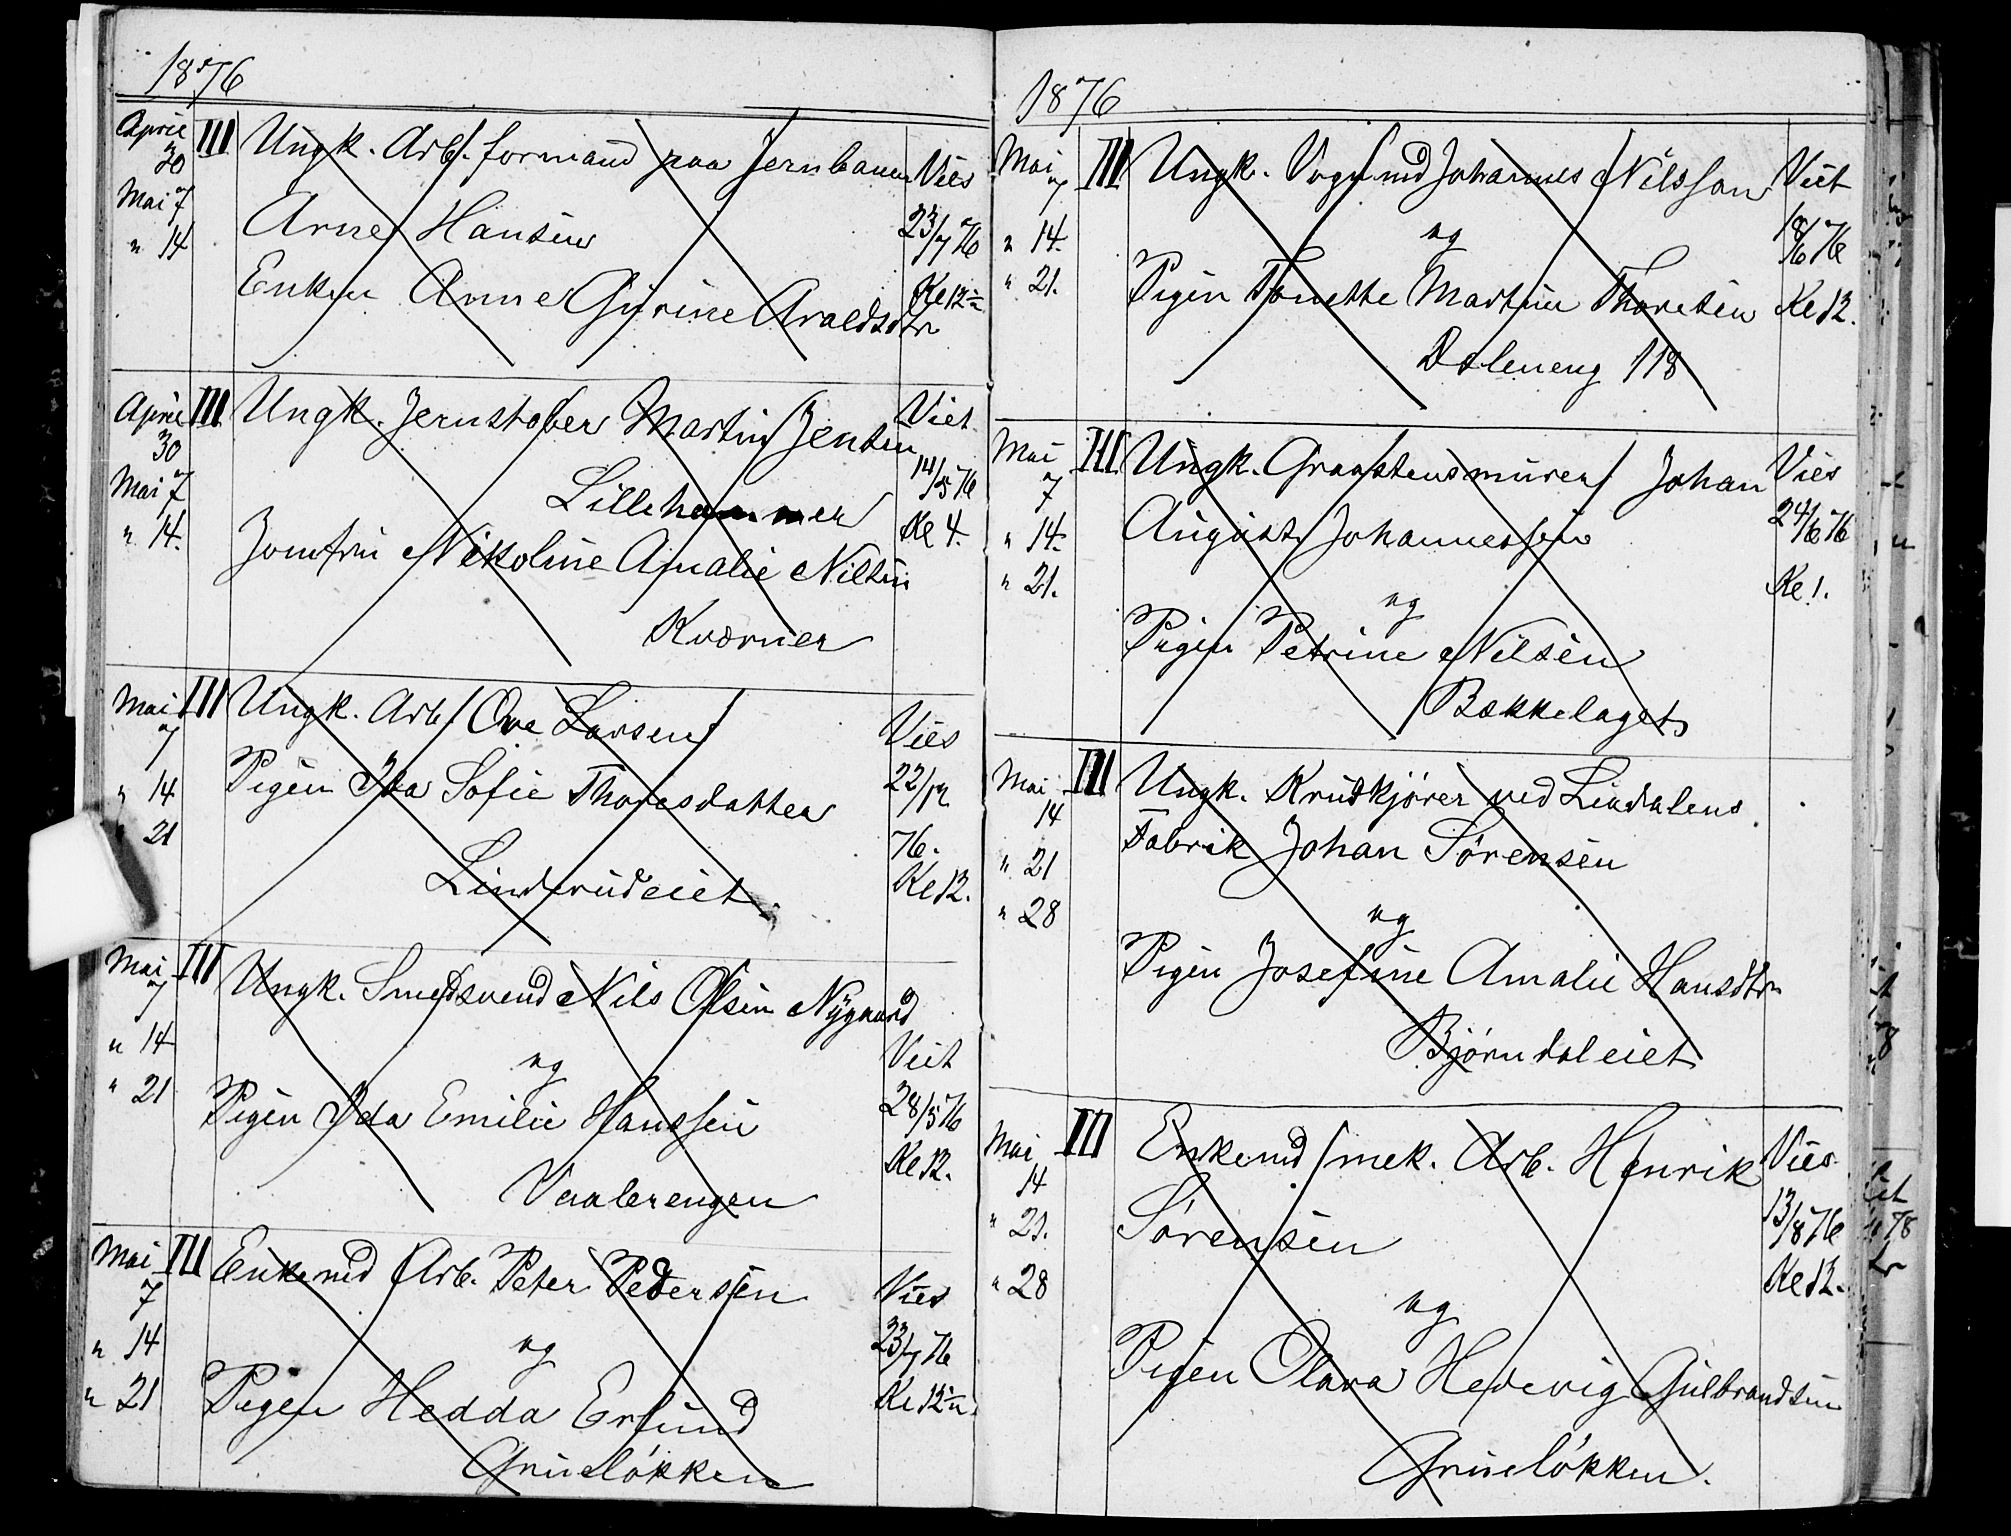 1876
April 30 III Ungk. Arb. formand paa Jernbanen Vies
Mai 7 Arne Hansen 23/7 76
" 14 Enken Anne Gurine Araldsdtr Kl 12
April 30 III Ungk. Jernstøber Martin Jensen Viet
Mai 7 Lillehammer 14/5 76
" 14. Jomfru Nikoline Amalie Nilsen Kl 4.
Kværner
Mai 7 III Ungk. Arb. Ove Larsen Vies
" 14 Pigen Ida Sofie Thoresdatter 22/12
" 21 76.
Linderudeiet. Kl 12.
Mai 7 III Ungk. Smedsvend Nils Olsen Nygaard
" 14 og Viet
" 21 Pigen Ida Emilie Hanssen 28/5 76
Vaalerengen Kl 12.
Mai 7 III Enkemd Arb. Peter Pedersen Vies
" 14 og 23/7 76
" 21 Pigen Hedda Erlund Kl 12
Grüneløkken
1876
Mai 7 III Ungk. Vognmd Johannes Nilsson Viet
" 14. og 18/6 76
" 21. Pigen Tonette Martine Thoresen Kl 12.
Dæleneng 118
Mai 7 III Ungk. Graastensmurer Johan Vies
" 14. August Johannessen 24/6 76
" 21. og Kl 1.
Pigen Petrine Nilsen
Bækkelaget
Mai 14 III Ungk. Krudkjører ved Lindalens
" 21 Fabrik Johan Sørensen
" 28 og
Pigen Josefine Amalie Hansdtr
Bjørndaleiet
Mai 14 III Enkemd mek. Arb. Henrik Vies
" 21. Sørensen 13/8 76
" 28 og Kl 12.
Pigen Olava Hedevig Gulbrandsen
Grüneløkken.